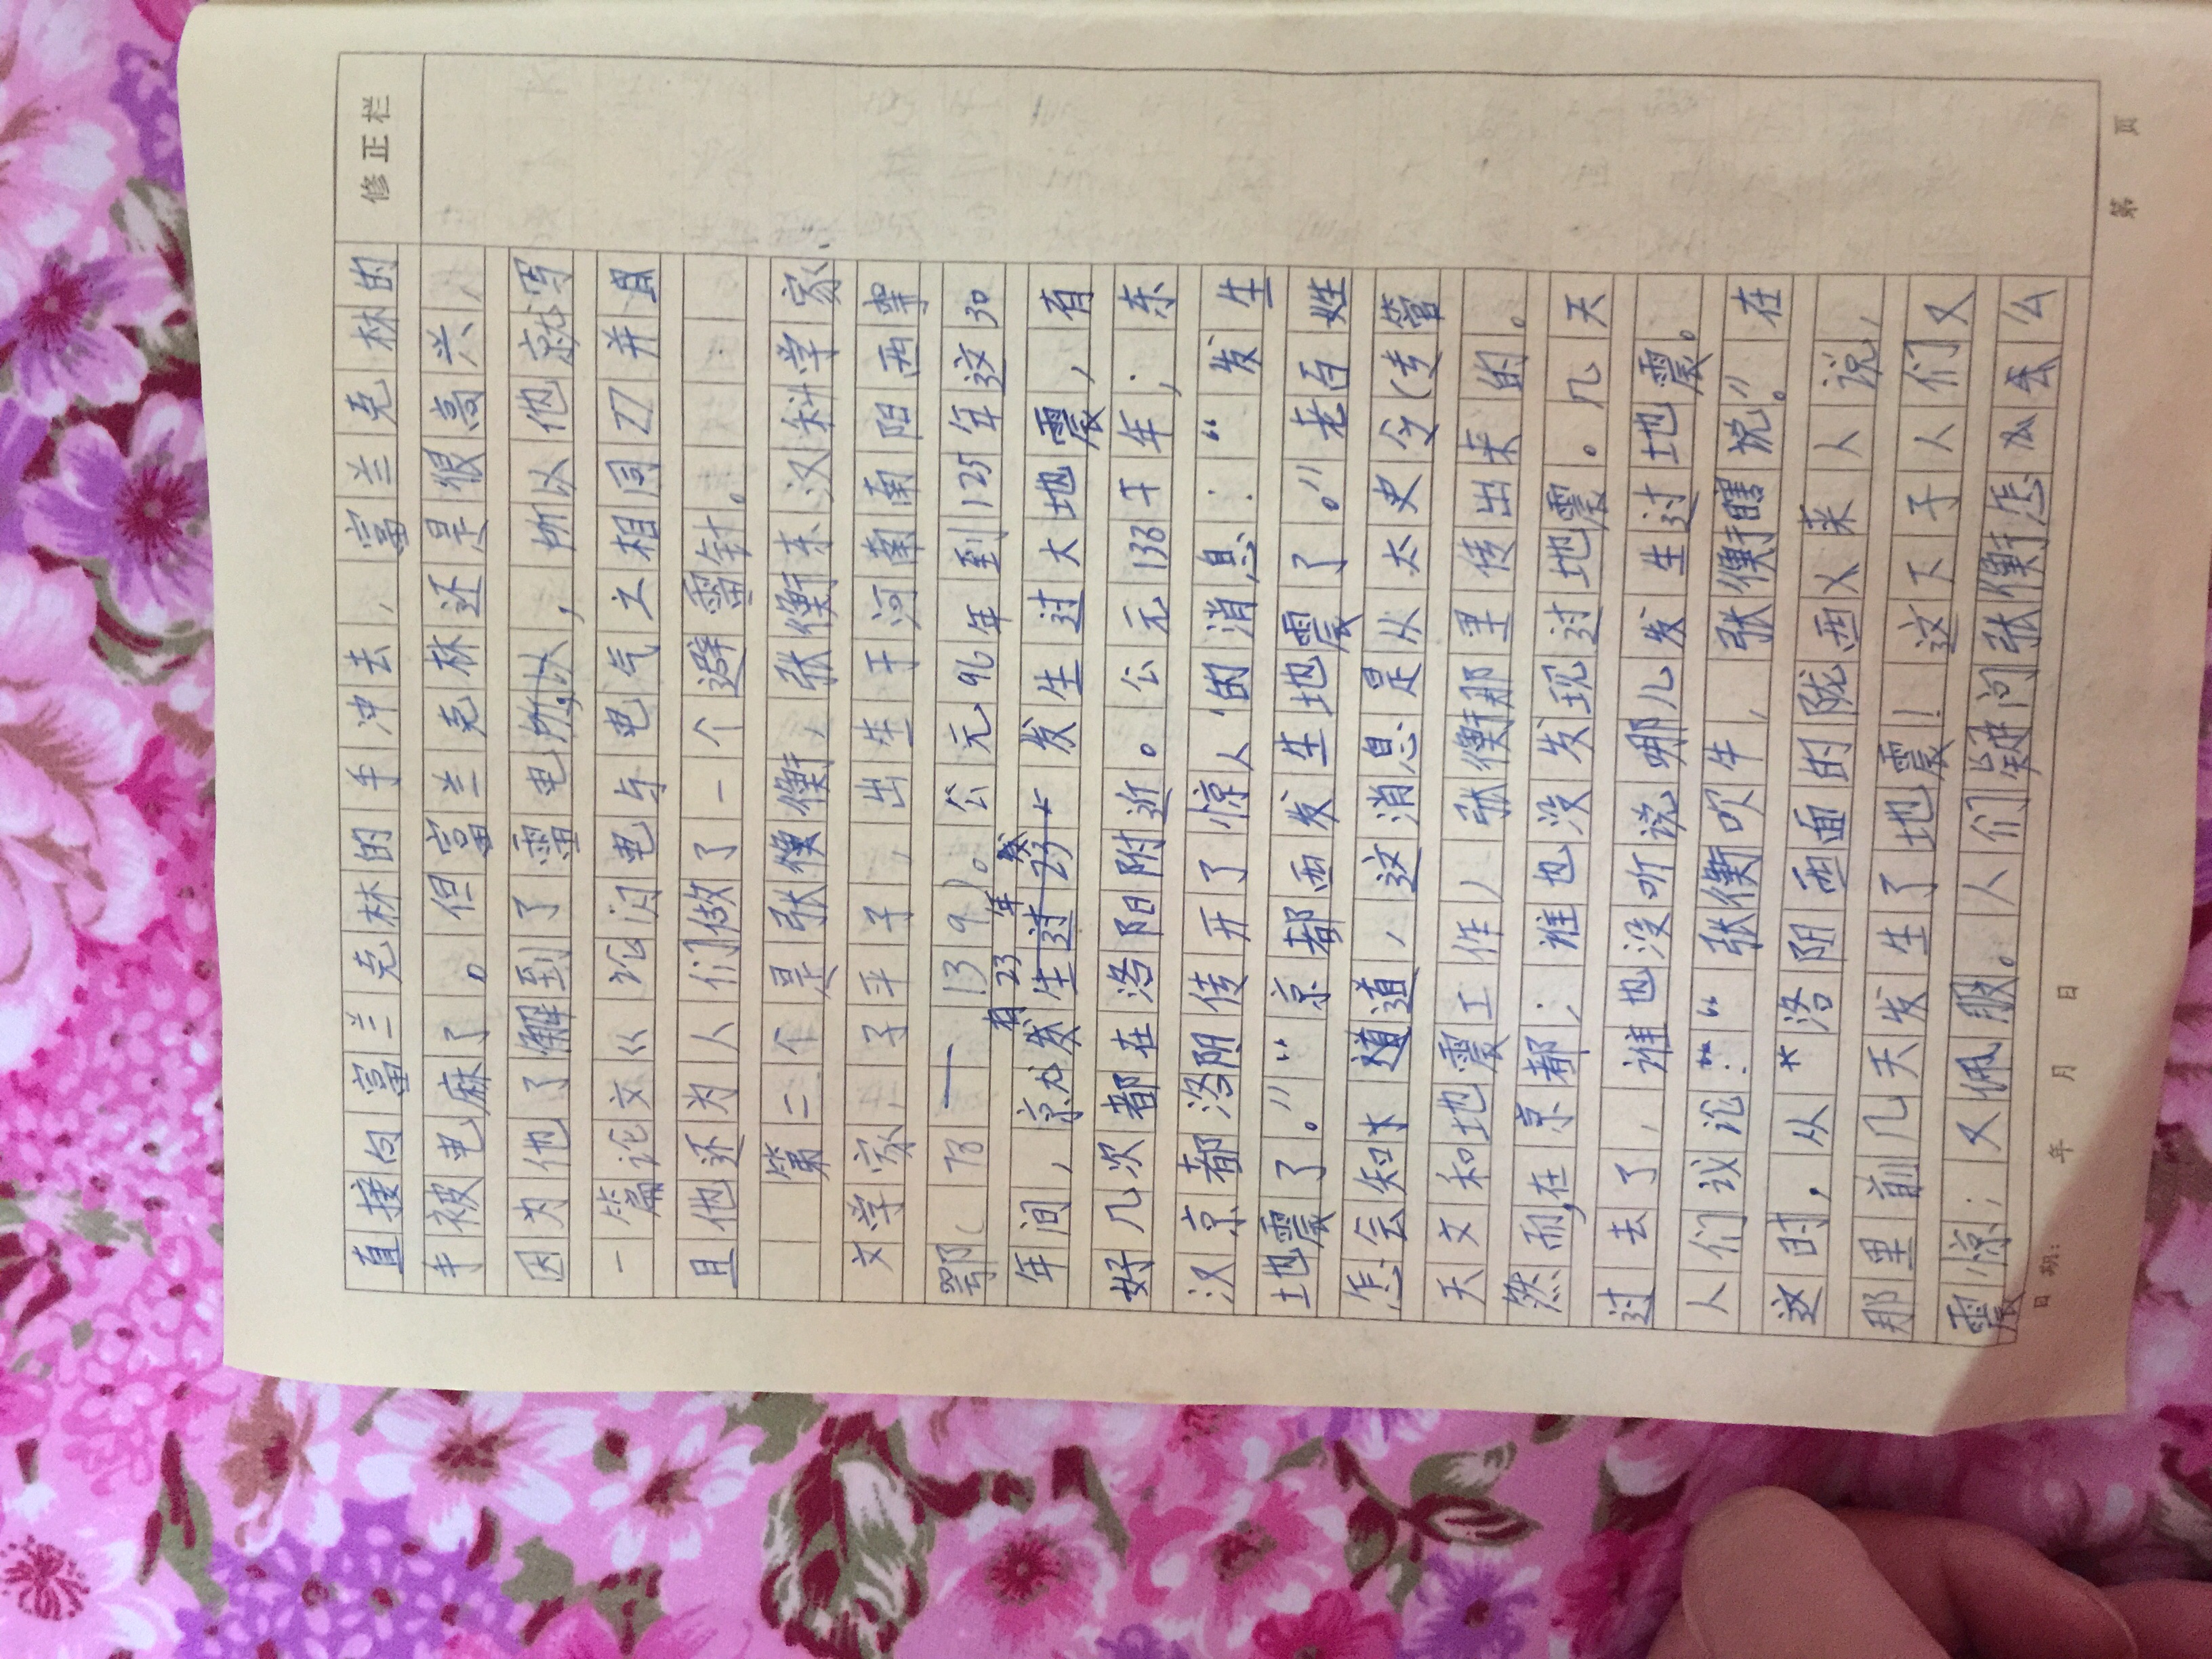 修正栏
直接向富兰克林的手冲去，富兰克林的
手被电麻了。但富兰克林还是很高兴，
因为他了解到了雷电，所以他就写
一篇论文《论闪电与电气之相同》并且
且他还为人们做了一个避雷针。
第二个是张衡，张衡东汉科学家、
文学家，字平子，出生于河南南阳西鄂
鄂（78——139）。公元96年到125年这30
年间，京九有23年发生过大地震，有
好几次都在洛阳附近。公元138于年，东
汉京都洛阴传开了惊人的消息：“发生
地震了。”“京都西发生地震了。”老百姓
怎会知道，这消息是从太史令（专管
天文和地震工作）张衡那里传出来的。
然而，在京都；谁也没发现过地震。几天
过去了，谁也没听说哪儿发生过地震。
人们议论：“张衡吹牛，张衡瞎说”。在
这时，从洛阴西面的陇西义来人说，
那里前几天发生了地震！这下子人们又
震惊；又佩服。人们疑问张衡怎么会么
日期： 年 月 日
第 页